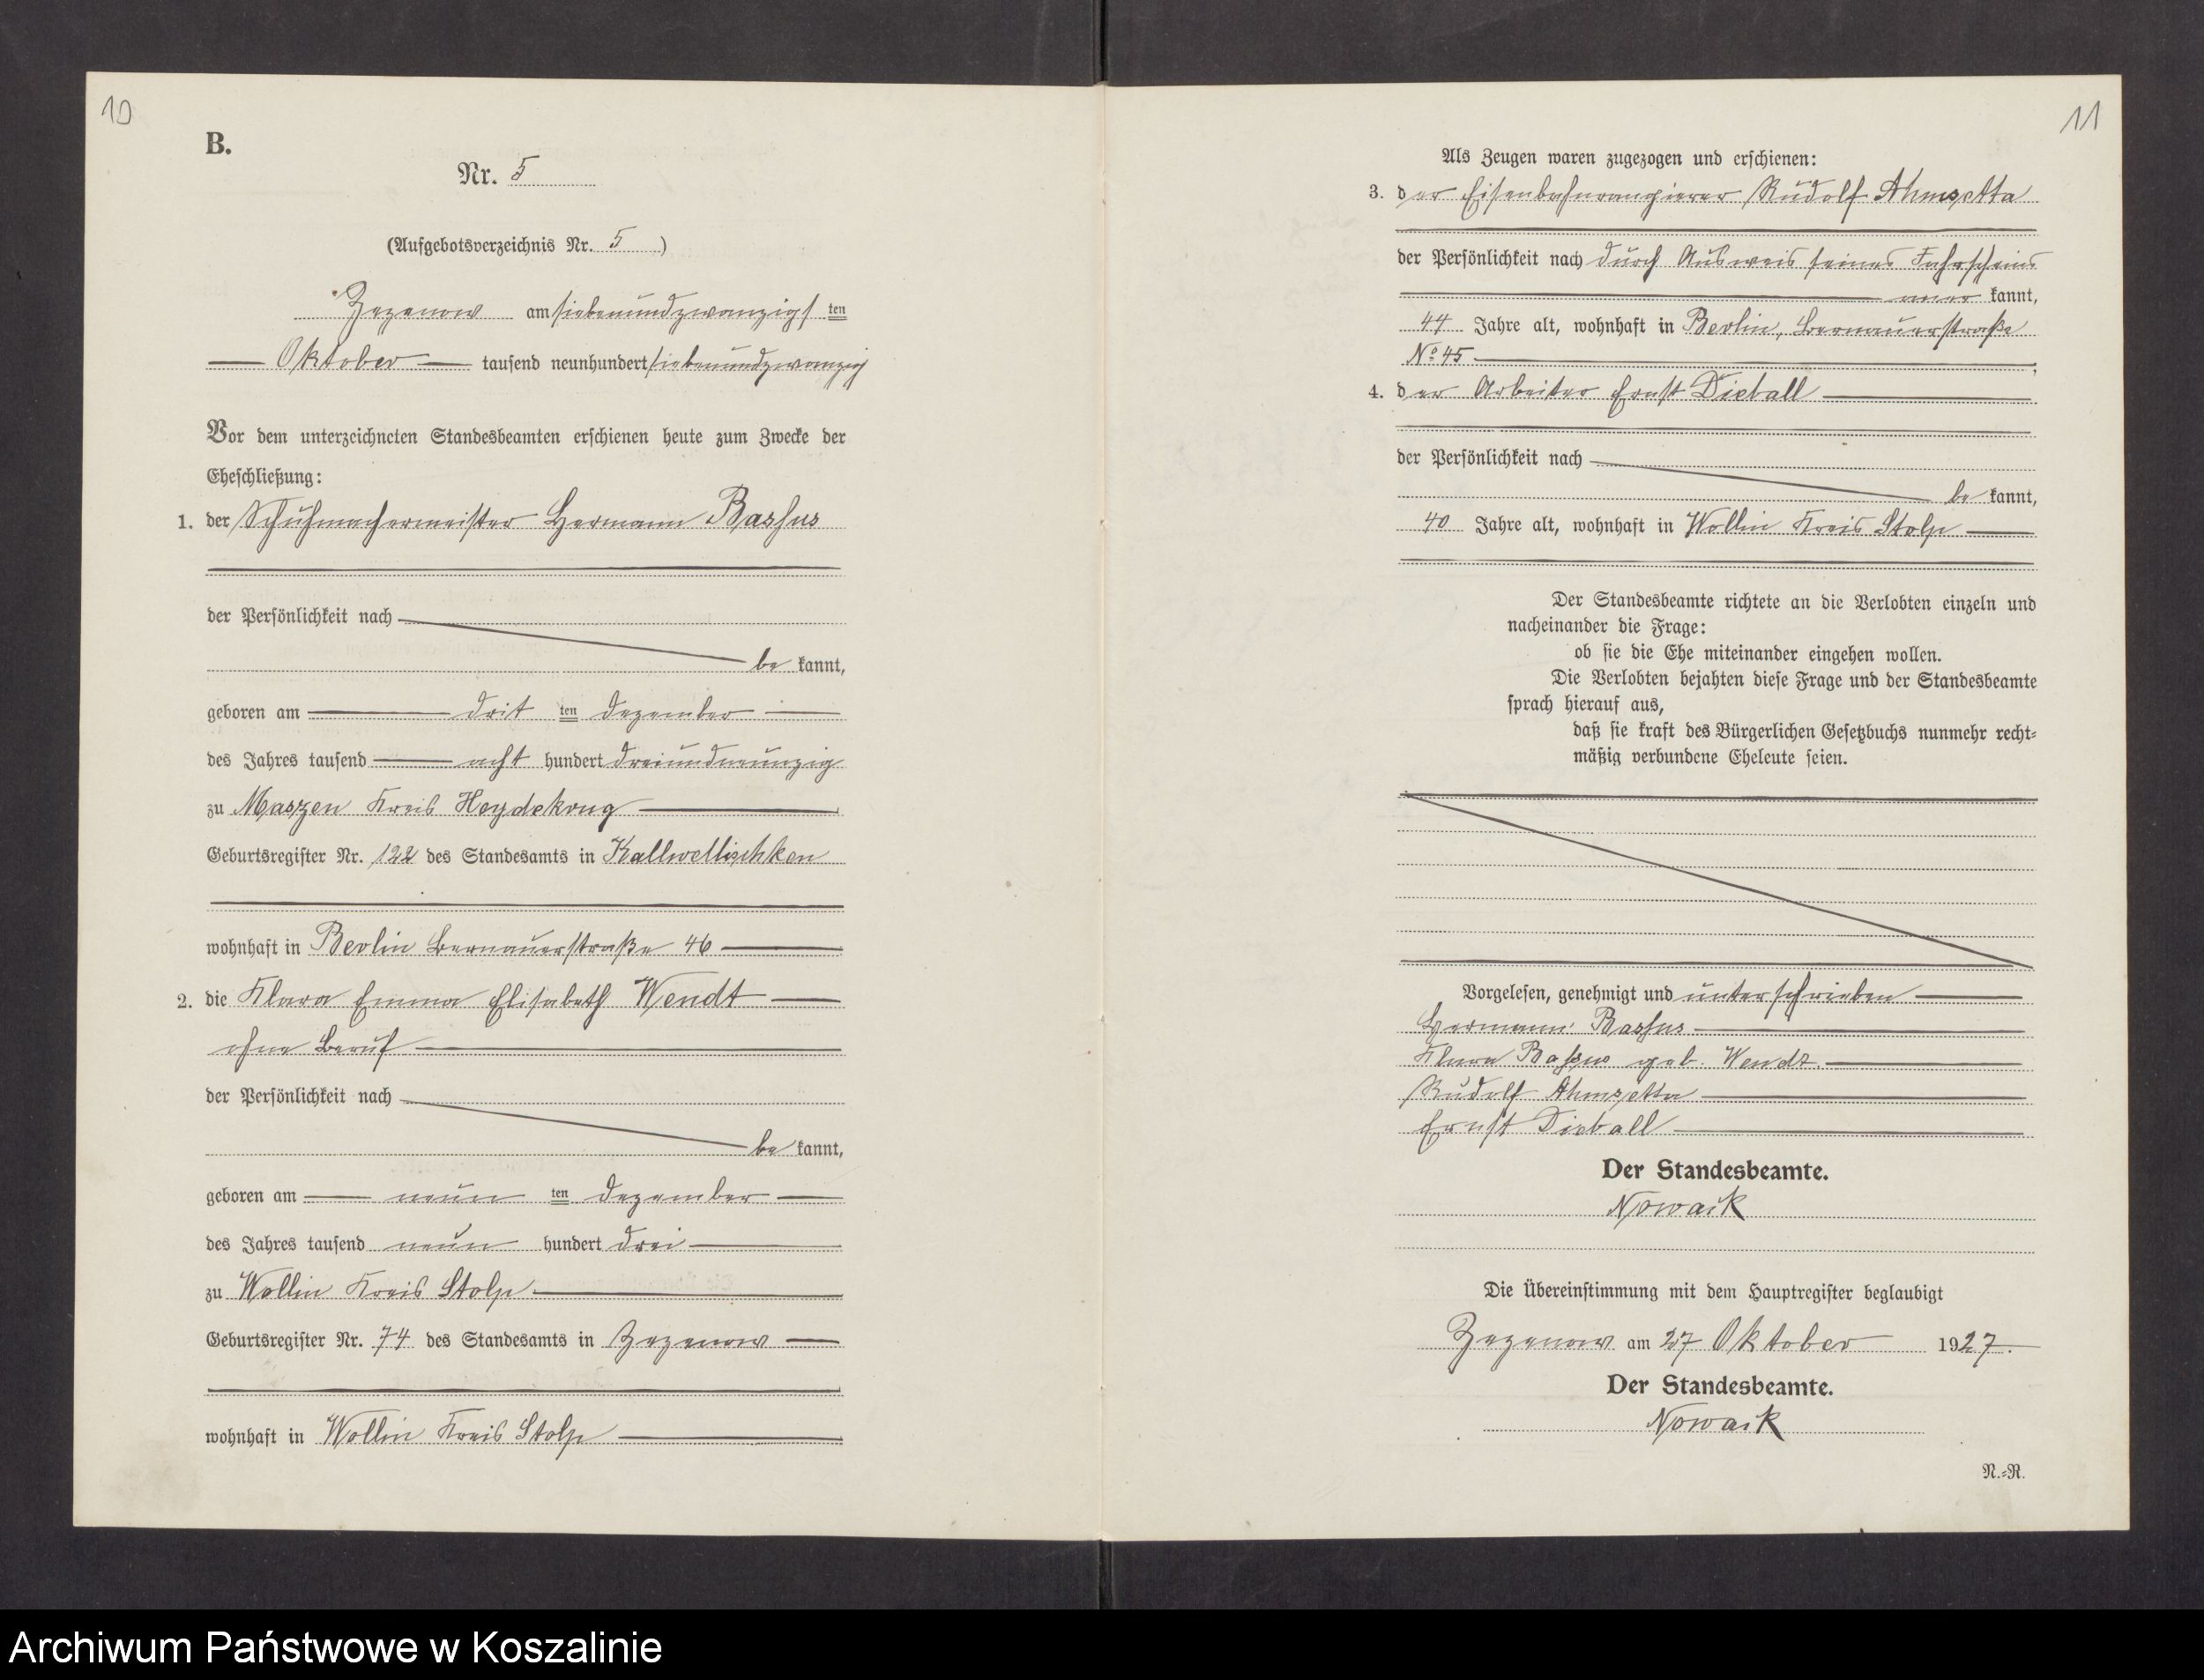 10
B.
Nr. 5
(Aufgebotsverzeichnis Nr. 5)
Zezenow am siebenundzwanzigsten
Oktober tausend neunhundert siebenundzwanzig
Vor dem unterzeichneten Standesbeamten erschienen heute zum Zwecke der
Eheschließung:
1. der Schuhmachermeister Hermann Baszus
der Persönlichkeit nach
be kannt,
geboren am dritten Dezember
des Jahres tausend acht hundert dreiundneunzig
zu Maszen Kreis Heydekrug
Geburtsregister Nr. 122 des Standesamts in Kallwellischken
wohnhaft in Berlin Bernauerstraße 46
2. die Klara Emma Elisabeth Wendt
ohne Beruf
der Persönlichkeit nach
be kannt,
geboren am neunten Dezember
des Jahres tausend neun hundert drei
zu Wollin Kreis Stolp
Geburtsregister Nr. 74 des Standesamts in Zezenow
wohnhaft in Wollin Kreis Stolp
11
Als Zeugen waren zugezogen und erschienen:
3. der Eisenbahnrangierer Rudolf
der Persönlichkeit nach durch Ausweis seines Fahrscheins
aner kannt,
44 Jahre alt, wohnhaft in Berlin, Bernauerstraße
No 45
4. der Arbeiter Ernst Dieball
der Persönlichkeit nach
be kannt,
40 Jahre alt, wohnhaft in Wollin Kreis Stolp
Der Standesbeamte richtete an die Verlobten einzeln und
nacheinander die Frage:
ob sie die Ehe miteinander eingehen wollen.
Die Verlobten bejahten diese Frage und der Standesbeamte
sprach hierauf aus,
daß sie kraft des Bürgerlichen Gesetzbuchs nunmehr recht-
mäßig verbundene Eheleute seien.
Vorgelesen, genehmigt und unterschrieben
Hermann Baszus
Klara Baszus geb. Wendt.
Rudolf
Ernst Dieball
Der Standesbeamte.
Nowack
Die Übereinstimmung mit dem Hauptregister beglaubigt
Zezenow am 27 Oktober 1927.
Der Standesbeamte.
Nowack
N.-R.
Archiwum Państwowe w Koszalinie